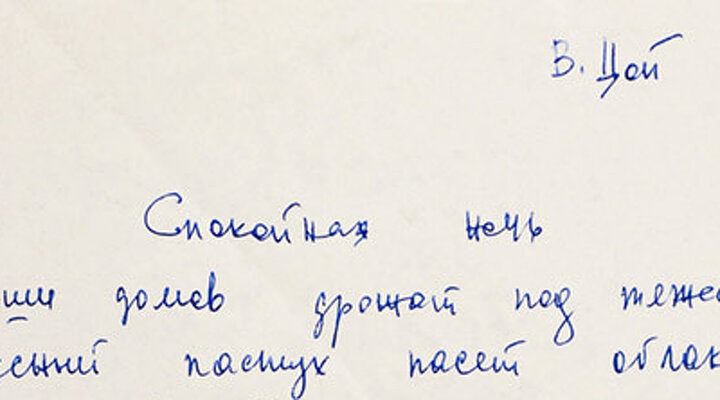 В. Цой
Спокойная ночь
ши домов дрожат под тяжес
есный пастух пасёт облак